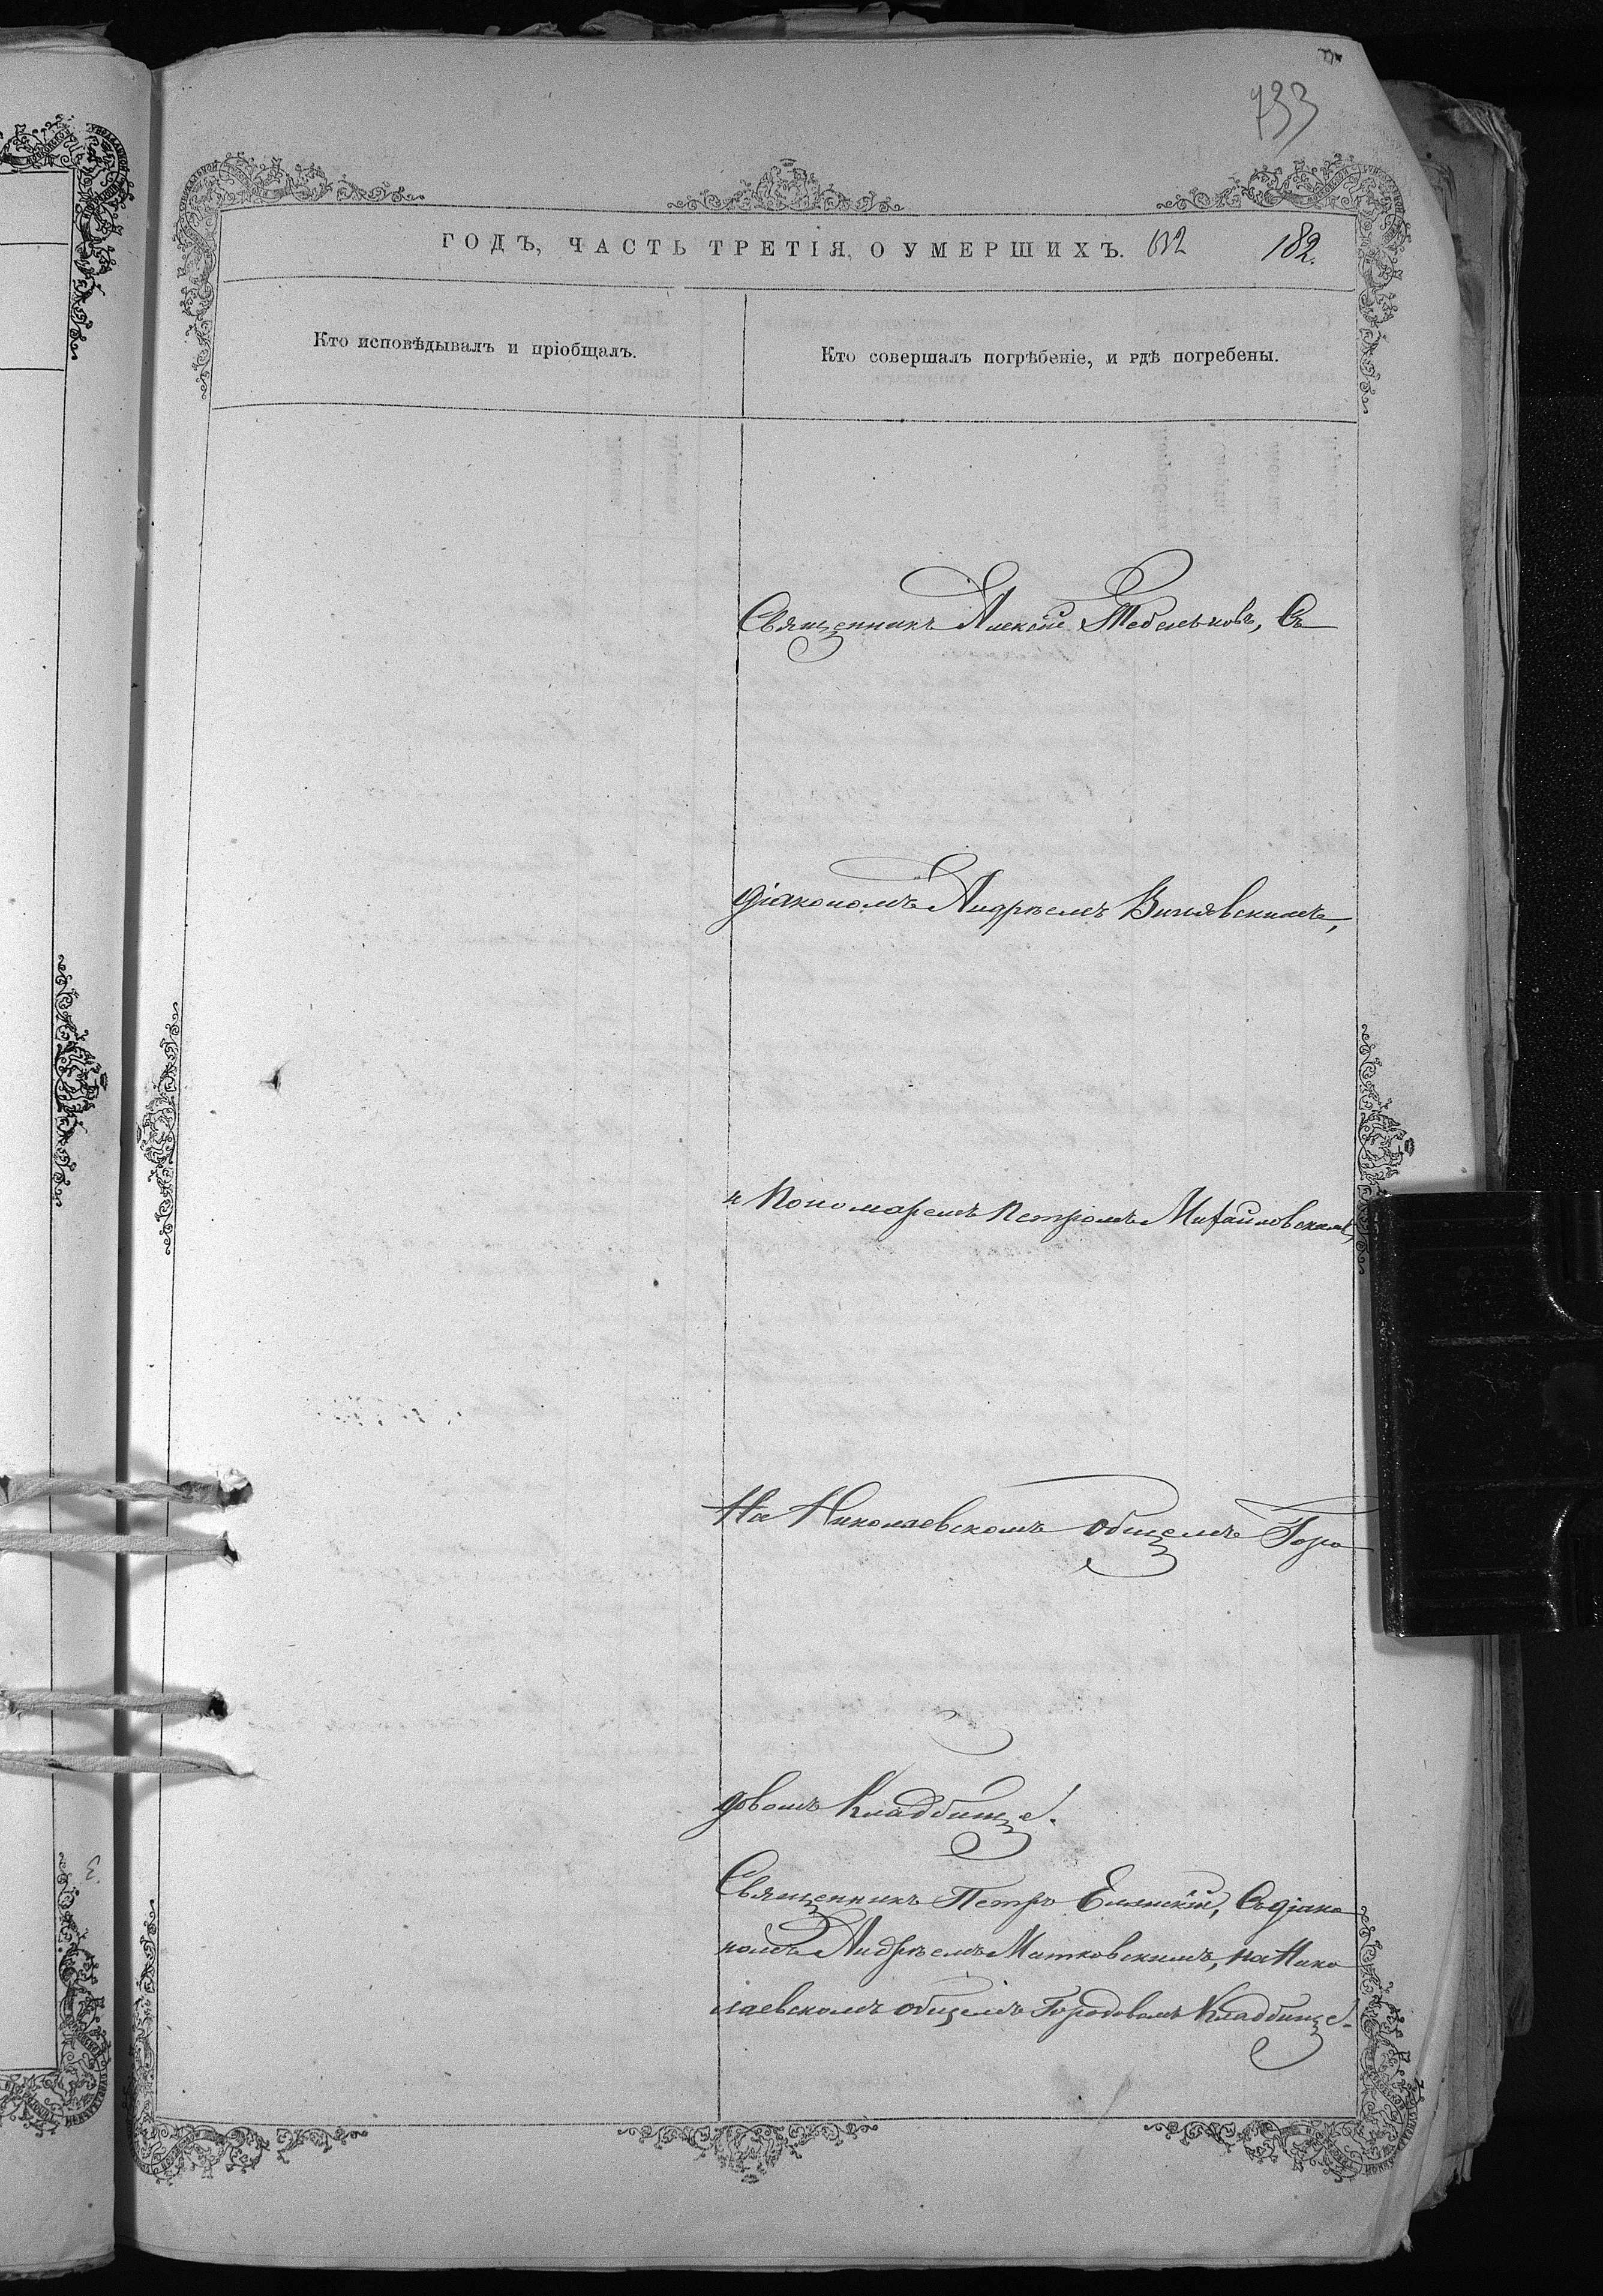 733
ГОДЪ, ЧАСТЬ ТРЕТІЯ, О УМЕРШИХЪ. 632 182.
Кто исповѣдывалъ и пріобщалъ.
Кто совершалъ погрѣбеніе, и гдѣ погребены.
Священникъ Алексій Тебеньковъ, Съ
діакономъ Андреемъ
и Пономаремъ Петромъ Михайловскимъ,
На Николаевскомъ общемъ Горо
довомъ Кладбище.
Священникъ Петръ Съ діако
номъ Андреемъ Матковскимъ, на Нико
лаевскомъ общемъ Городовомъ Кладбище.